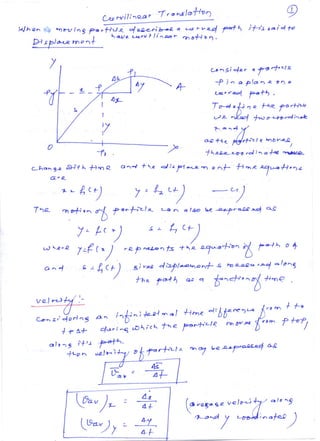 Curvilinear Translation
①
When moving particle describes a curved path it is said to
have curvilinear motion.
Displacement
y
P1
Δs
Δy
A
Py
P
Δx
s
y
O
x
Consider a particle
P in a plane on a
curved path.
To define the particle
we need two coordinate
x and y
as the particle moves,
these coordinate
change with time and the displacement time equations
are
x = f1(t) y = f2(t) — (1)
The motion of particle can also be expressed as
y = f(x) s = f1(t)
where y = f(x) represents the equation of path OA
and s = f1(t) gives displacement s measured along
the path as a function of time.
velocity:-
Considering an infinitesimal time difference from t to
t+δt during which the particle moves from P to P1
along its path.
then velocity of particle may be expressed as
Vav = Δs/Δt
(Vav)x = Δx/Δt
(Vav)y = Δy/Δt
(average velocity along
x and y coordinates)